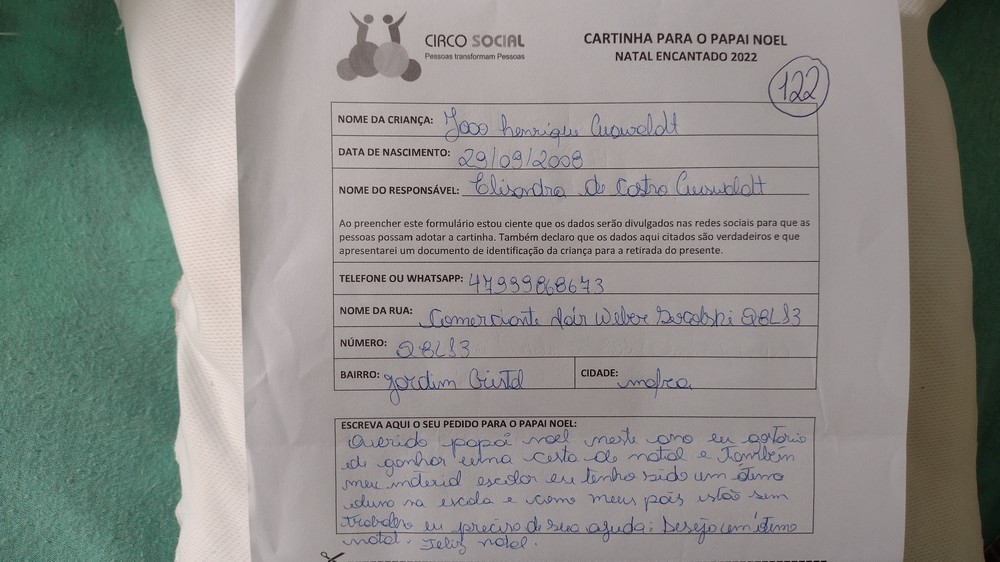 CIRCO SOCIAL
Pessoas transformam Pessoas
CARTINHA PARA O PAPAI NOEL
NATAL ENCANTADO 2022
122
NOME DA CRIANÇA: João henrique
DATA DE NASCIMENTO: 29/09/2008
NOME DO RESPONSÁVEL: Elisandra de Castro
Ao preencher este formulário estou ciente que os dados serão divulgados nas redes sociais para que as
pessoas possam adotar a cartinha. Também declaro que os dados aqui citados são verdadeiros e que
apresentarei um documento de identificação da criança para a retirada do presente.
TELEFONE OU WHATSAPP: 47999868673
NOME DA RUA: Comerciante Weber
NÚMERO:
BAIRRO: Jardim Cristal CIDADE: mafra
ESCREVA AQUI O SEU PEDIDO PARA O PAPAI NOEL:
Querido papai noel neste ano eu gostaria
de ganhar uma cesta de natal e também
meu material escolar eu tenho sido um ótimo
aluno na escola e como meus pais estão sem
trabalho eu preciso de sua ajuda: Desejo um ótimo
natal. Feliz natal.